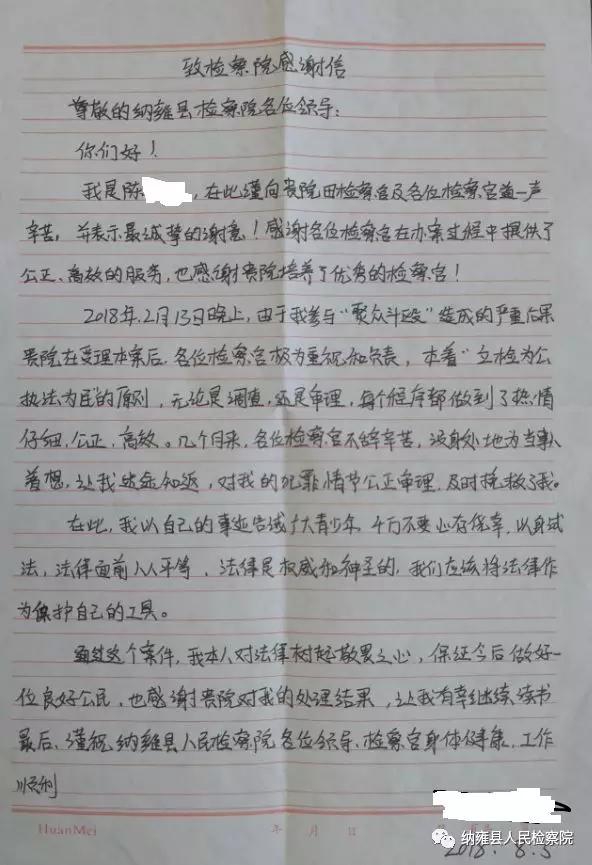 致检察院感谢信
尊敬的纳雍县检察院各位领导:
你们好!
我是陈 ,在此谨向贵院田检察官及各位检察官道一声
辛苦,并表示最诚挚的谢意!感谢各位检察官在办案过程中提供了
公正、高效的服务,也感谢贵院培养了优秀的检察官!
2018年2月13日晚上,由于我参与“聚众斗殴”造成的严重后果
贵院在受理本案后,各位检察官极为重视和负责,本着“立检为公
执法为民的原则,无论是调查,还是审理,每个程序都做到了热情
仔细,公正,高效。几个月来,各位检察官不辞辛苦,设身处地为当事人
着想,让我迷途知返,对我的犯罪情节公正审理,及时挽救了我。
在此,我以自己的事迹告诫广大青少年,千万不要心存侥幸,以身试
法,法律面前人人平等,法律是权威和神圣的,我们应该将法律作
为保护自己的工具。
通过这个案件,我本人对法律树起敬畏之心,保证今后做好一
位良好公民,也感谢贵院对我的处理结果,让我有幸继续读书
最后,谨祝纳雍县人民检察院各位领导、检察官身体健康,工作
顺利
HuanMei 年 月 日
2018.8.5
纳雍县人民检察院